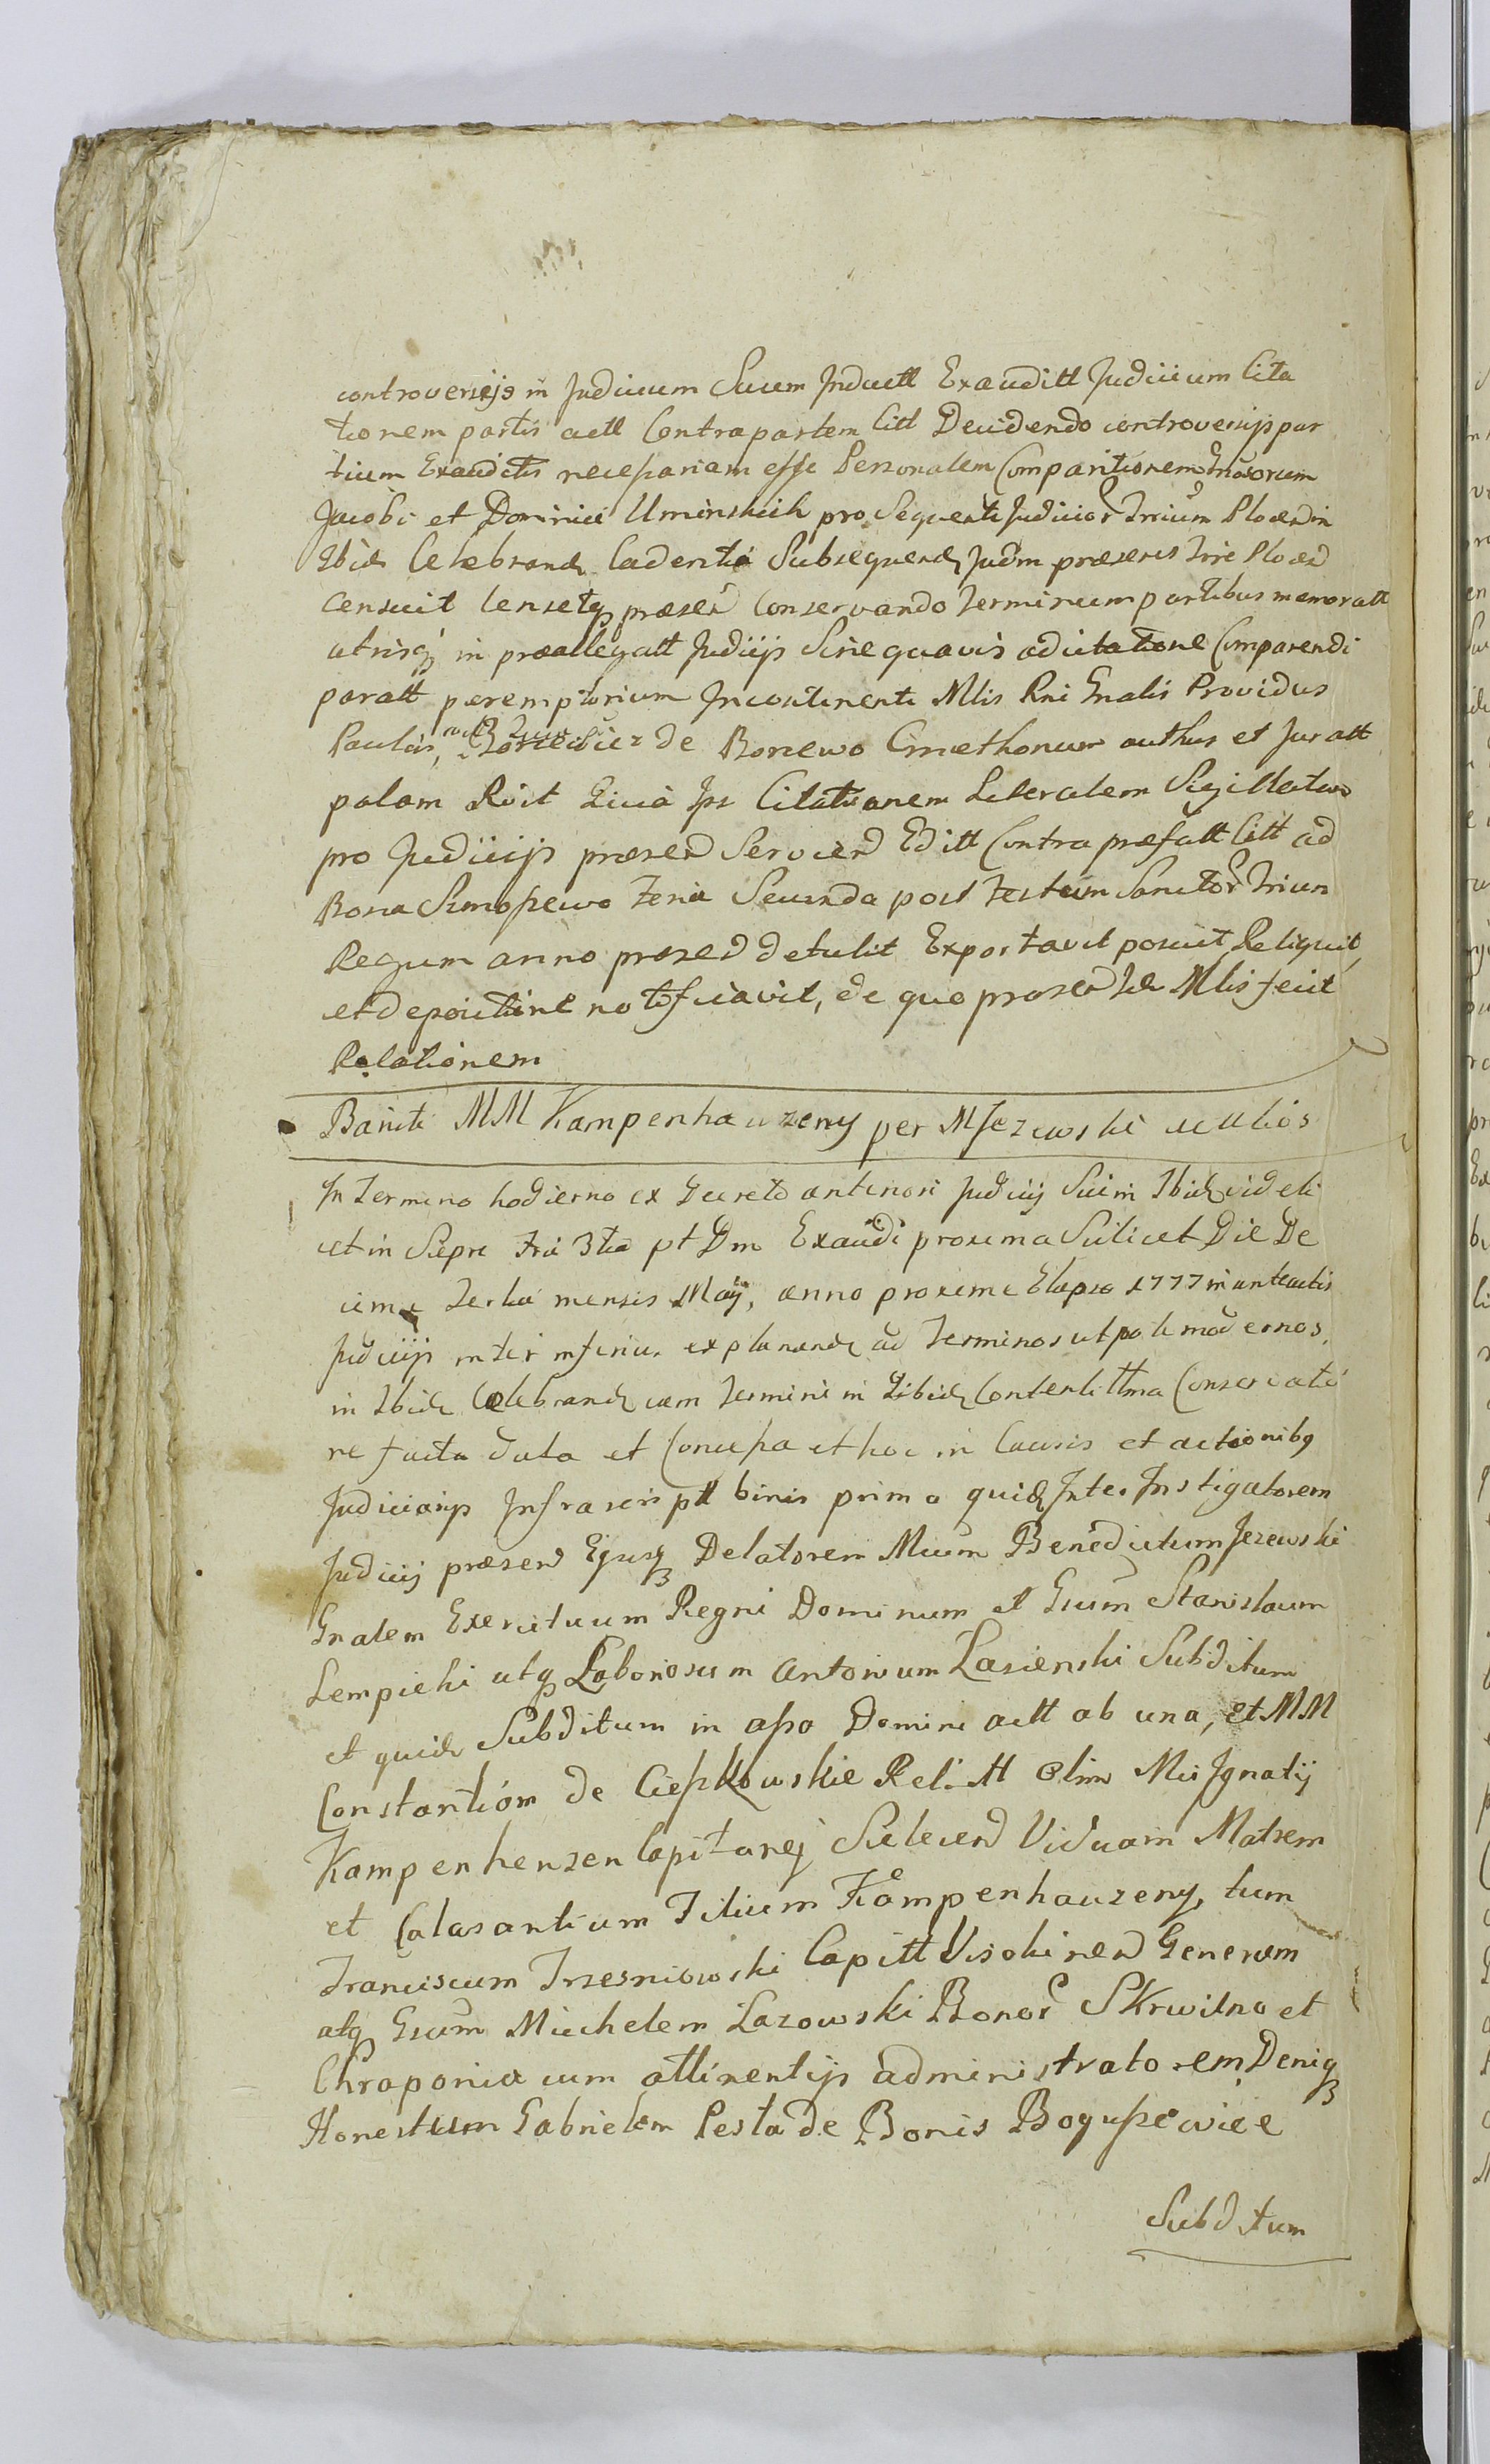 controversijs in Judicium Suum Induett Exauditt Judicium Cita
tionem partis actt Contrapartem Citt Decidendo controversijs par
tium Exauditis necessariam esse Personalem Comparitionem Gnosorum
Jacobi et Dominici Uminskich pro Sequenti Judicior Trium Plocen in
Ibid Celebrand Cadentia Subsequend Judm præsens Trre Plocen
Censuit Censetq præsen Conservando Terminum partibus memoratt
utrisq in præallegatt Judicijs Sine quavis adcitatione Comparendi
paratt peremptorium Incontinenti Mlis Rni Gnalis Providus
Paulus de Borzewo Cmethonum authus et Juratt
palam Rvit Quia Ipse Citationem Literalem Sigillatam
pro Judicijs præsen Serviend Editt Contra præfatt Citt ad
Bona Simoszewo Feria Secunda post Festum Sanctor Trium
Regum anno præsen detulit Exportavit posuit Reliquit,
et de positione notificavit, de quo præsen Mlis fecit
Relationem
Baniti MM Kampenhauzeny per MJezewski
In Termino hodierno ex Decreto anteriori Judicij Sui in Ibid videli
cet in Sierpc Fria 3tia pt Dm Exaudi proxima Scilicet Die De
cima Tertia mensis Maij, anno proxime Elapso 1777 in anteactis
Judicijs inter inferius explanand ad Terminos utpote modernos,
in Ibid Celebrand cum Termini in Ibid Contentittma Conservatio
ne facta data et Concessa et hoc in Causis et actionibq
Judiciarijs Infrascriptt binis primo quid Inter Instigatorem
Judicij præsen Ejusq Delatorem Mcum Benedictum Jezewski
Gnalem Exercituum Regni Dominum et Gsum Stanislaum
Lempicki atq Laboriosum Antonium Lasienski Subditum
et quid Subditum in asso Domini actt ab una, et MM
Constantiom de Cieszkowskie Relictt olim Mci Ignatij
Kampenhenzen Capitanej Viduam Matrem
et Calasantium Filium Kampenhauzeny, tum
Franciscum Trzesniowski Capitt Visokinen Generum
atq Gsum Michelem Lazowski Bonor Skrwilno et
Chraponia cum attinentijs administratorem, Deniq
Honestum Gabrielem Pesta de Bonis Boguszewice
Subditum